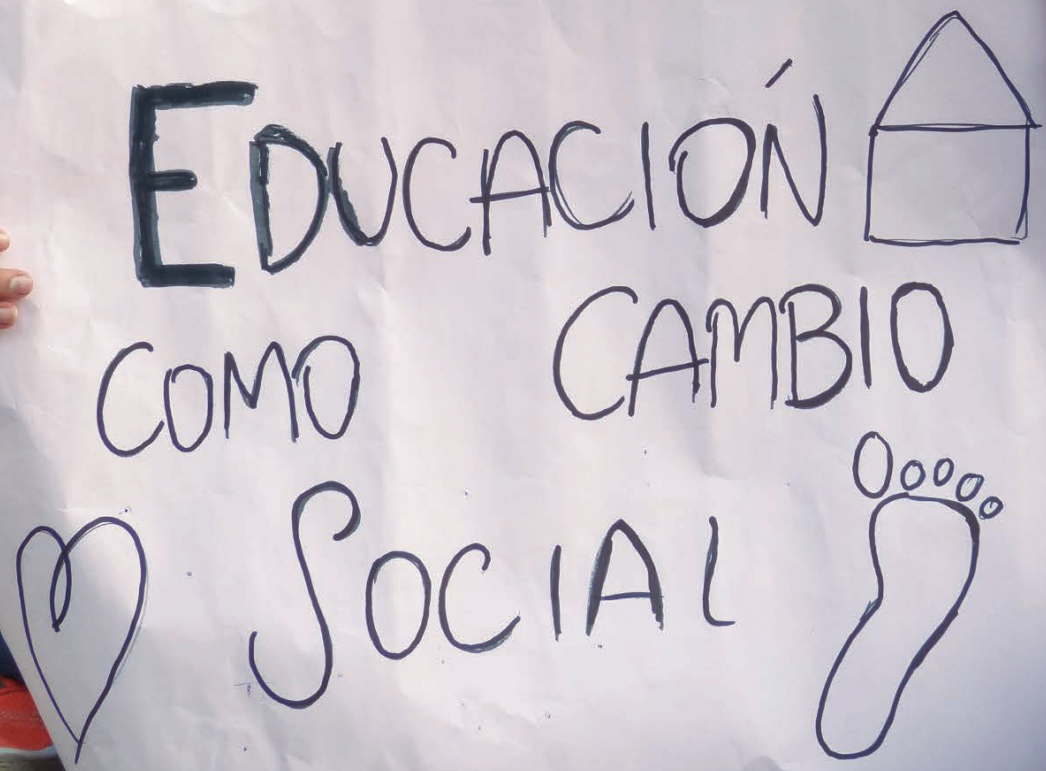 EDUCACIÓN
COMO CAMBIO
SOCIAL